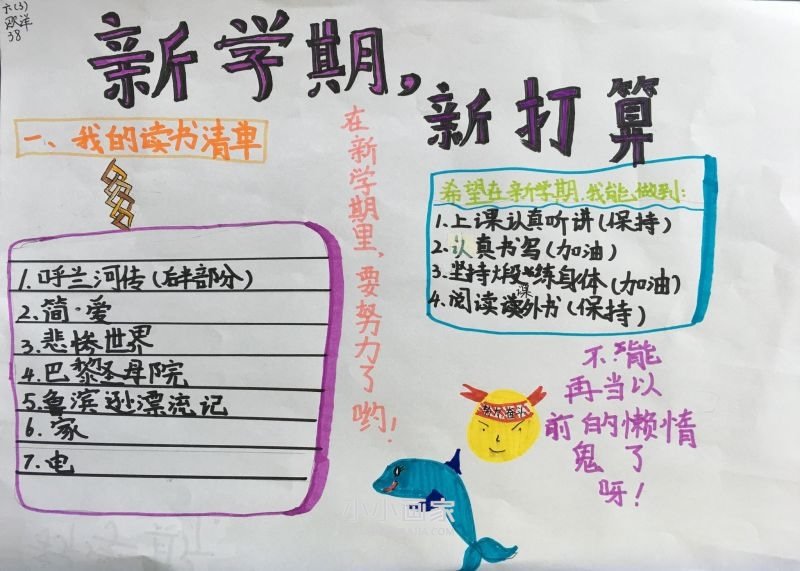 六(3)
38
新学期,
新打算
一、我的读书清单
1.呼兰河传(后半部分)
2.简·爱
3.悲惨世界
4.巴黎圣母院
5.鲁滨逊漂流记
6.家
7.电
在新学期里,要努力了哟!
希望在新学期,我能做到:
1.上课认真听讲(保持)
2.认真书写(加油)
3.坚持煅练身体(加油)
4.阅读课外书(保持)
不能
再当以
前的懒惰
鬼了
呀!
小小画家